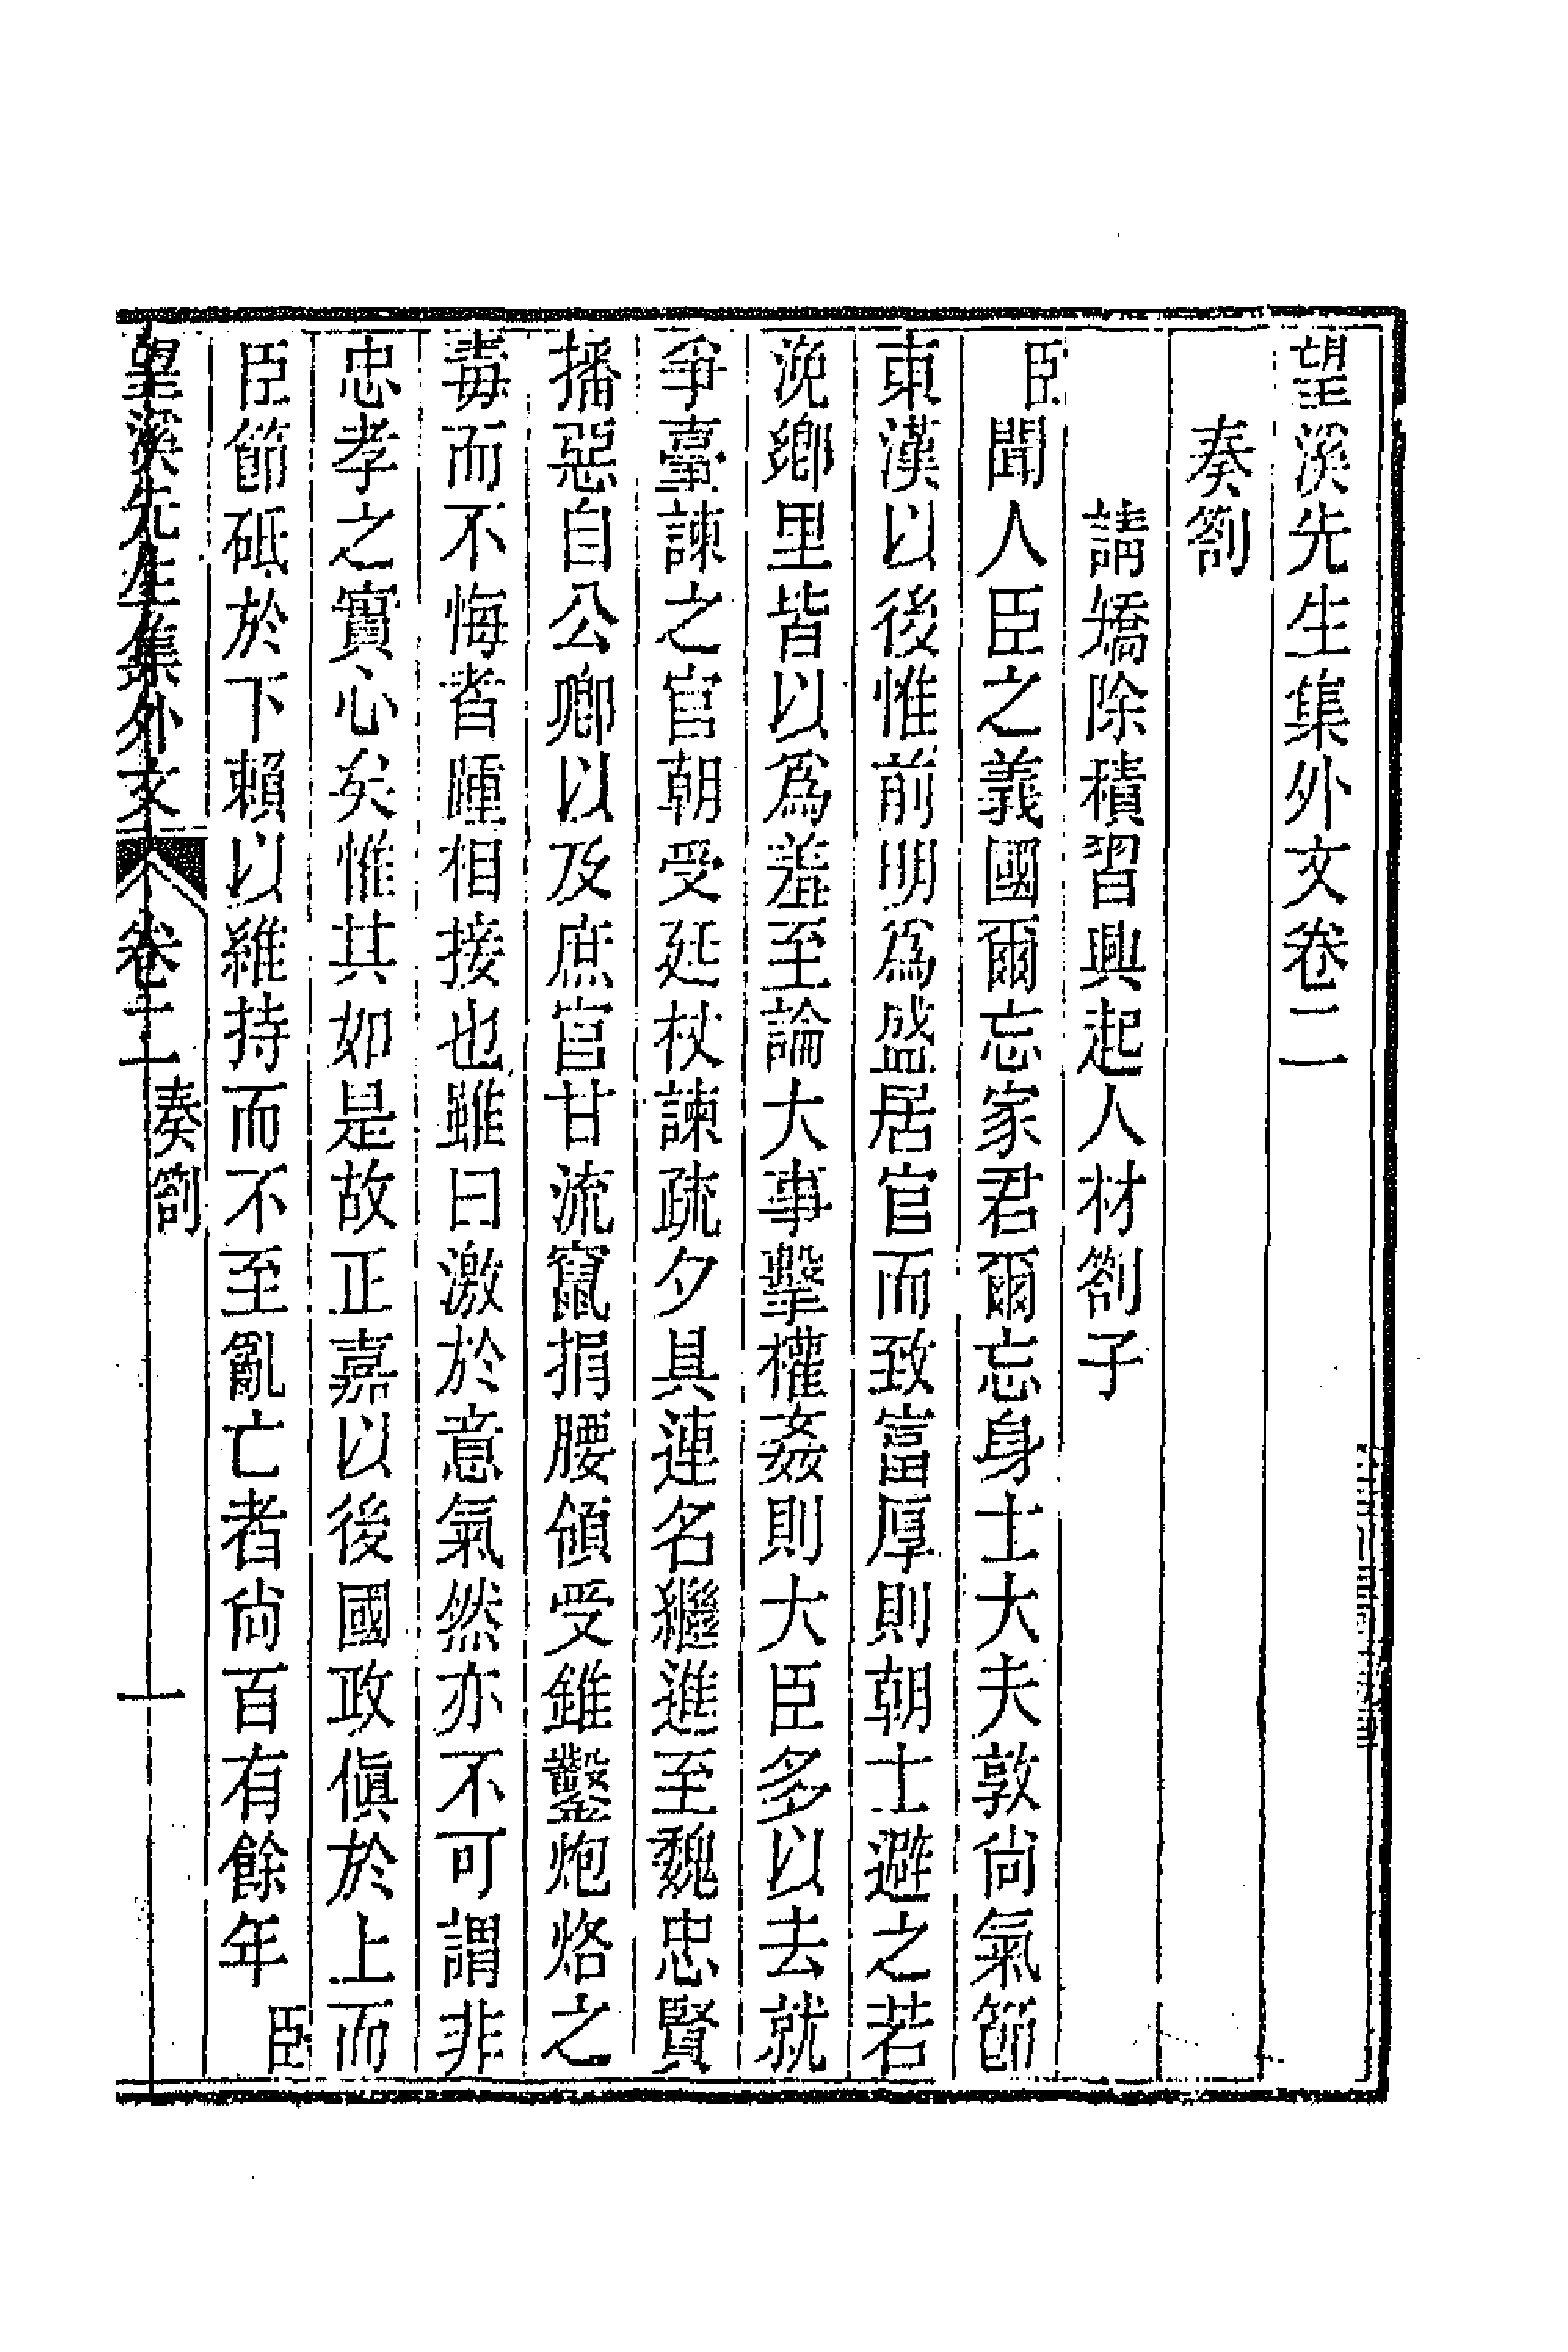 望溪先生集外文卷二
奏劄
請矯除積習興起人材劄子
臣聞人臣之義國爾忘家君爾忘身士大夫敦尙氣節
東漢以後惟前明爲盛居官而致富厚則朝士避之若
浼鄉里皆以爲羞至論大事擊權姦則大臣多以去就
爭臺諫之官朝受廷杖諫疏夕具連名繼進至魏忠賢
播惡自公卿以及庶官甘流竄捐腰領受錐鑿炮烙之
毒而不悔者踵相接也雖曰激於意氣然亦不可謂非
忠孝之實心矣惟其如是故正嘉以後國政傎於上而
臣節砥於下賴以維持而不至亂亡者尙百有餘年臣
望溪先生集外文 卷二 奏劄 一